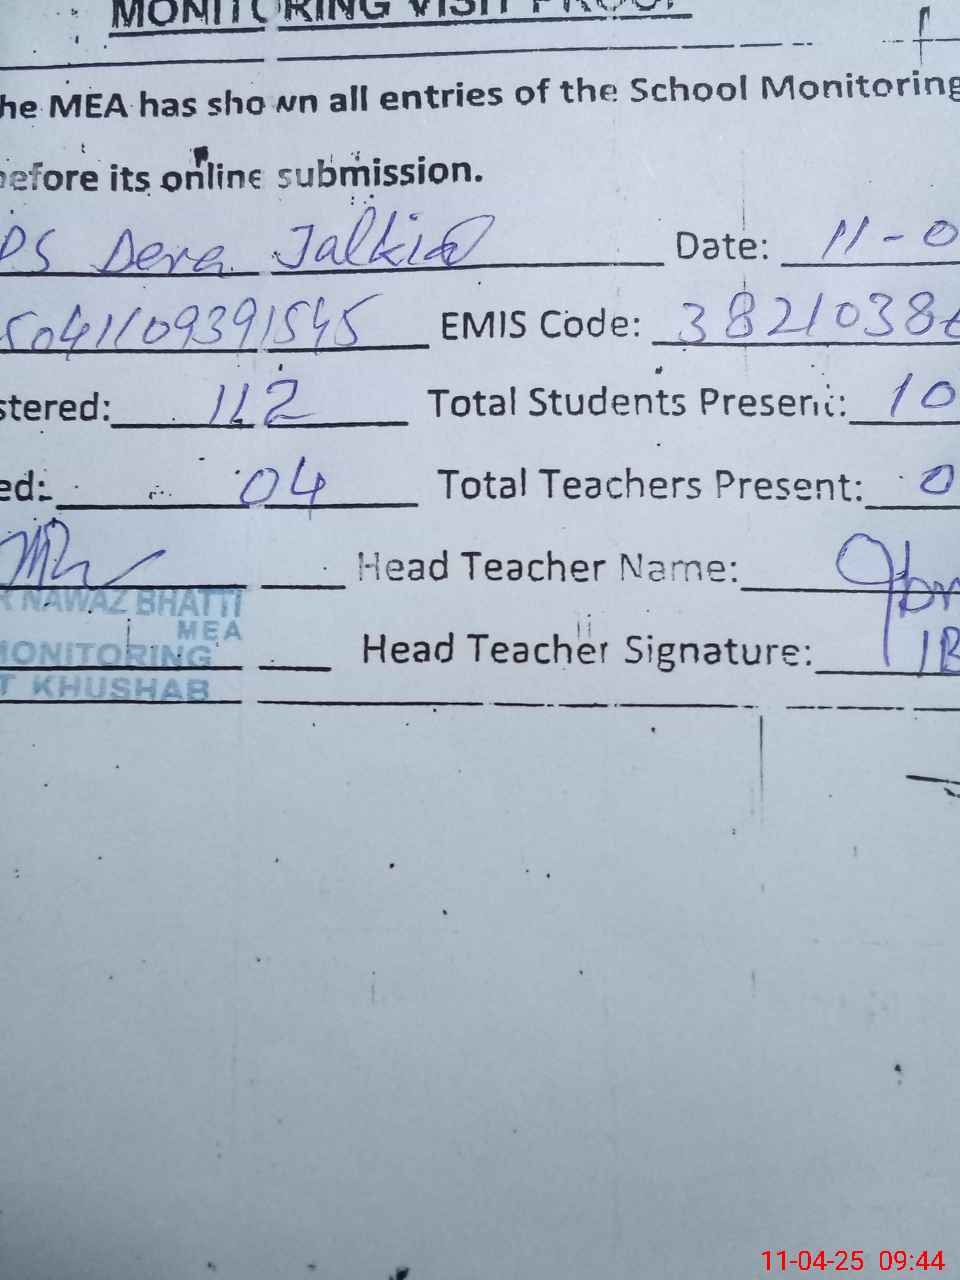 MONITORING VISIT PROOF
he MEA has shown all entries of the School Monitoring
before its online submission.
PS Dera Jalkia Date: 11-0
5041109391545 EMIS Code: 3821038
stered: 112 Total Students Present: 10
ed: 04 Total Teachers Present: 0
Head Teacher Name:
R NAWAZ BHATTI
MEA
MONITORING Head Teacher Signature:
T KHUSHAB
11-04-25 09:44